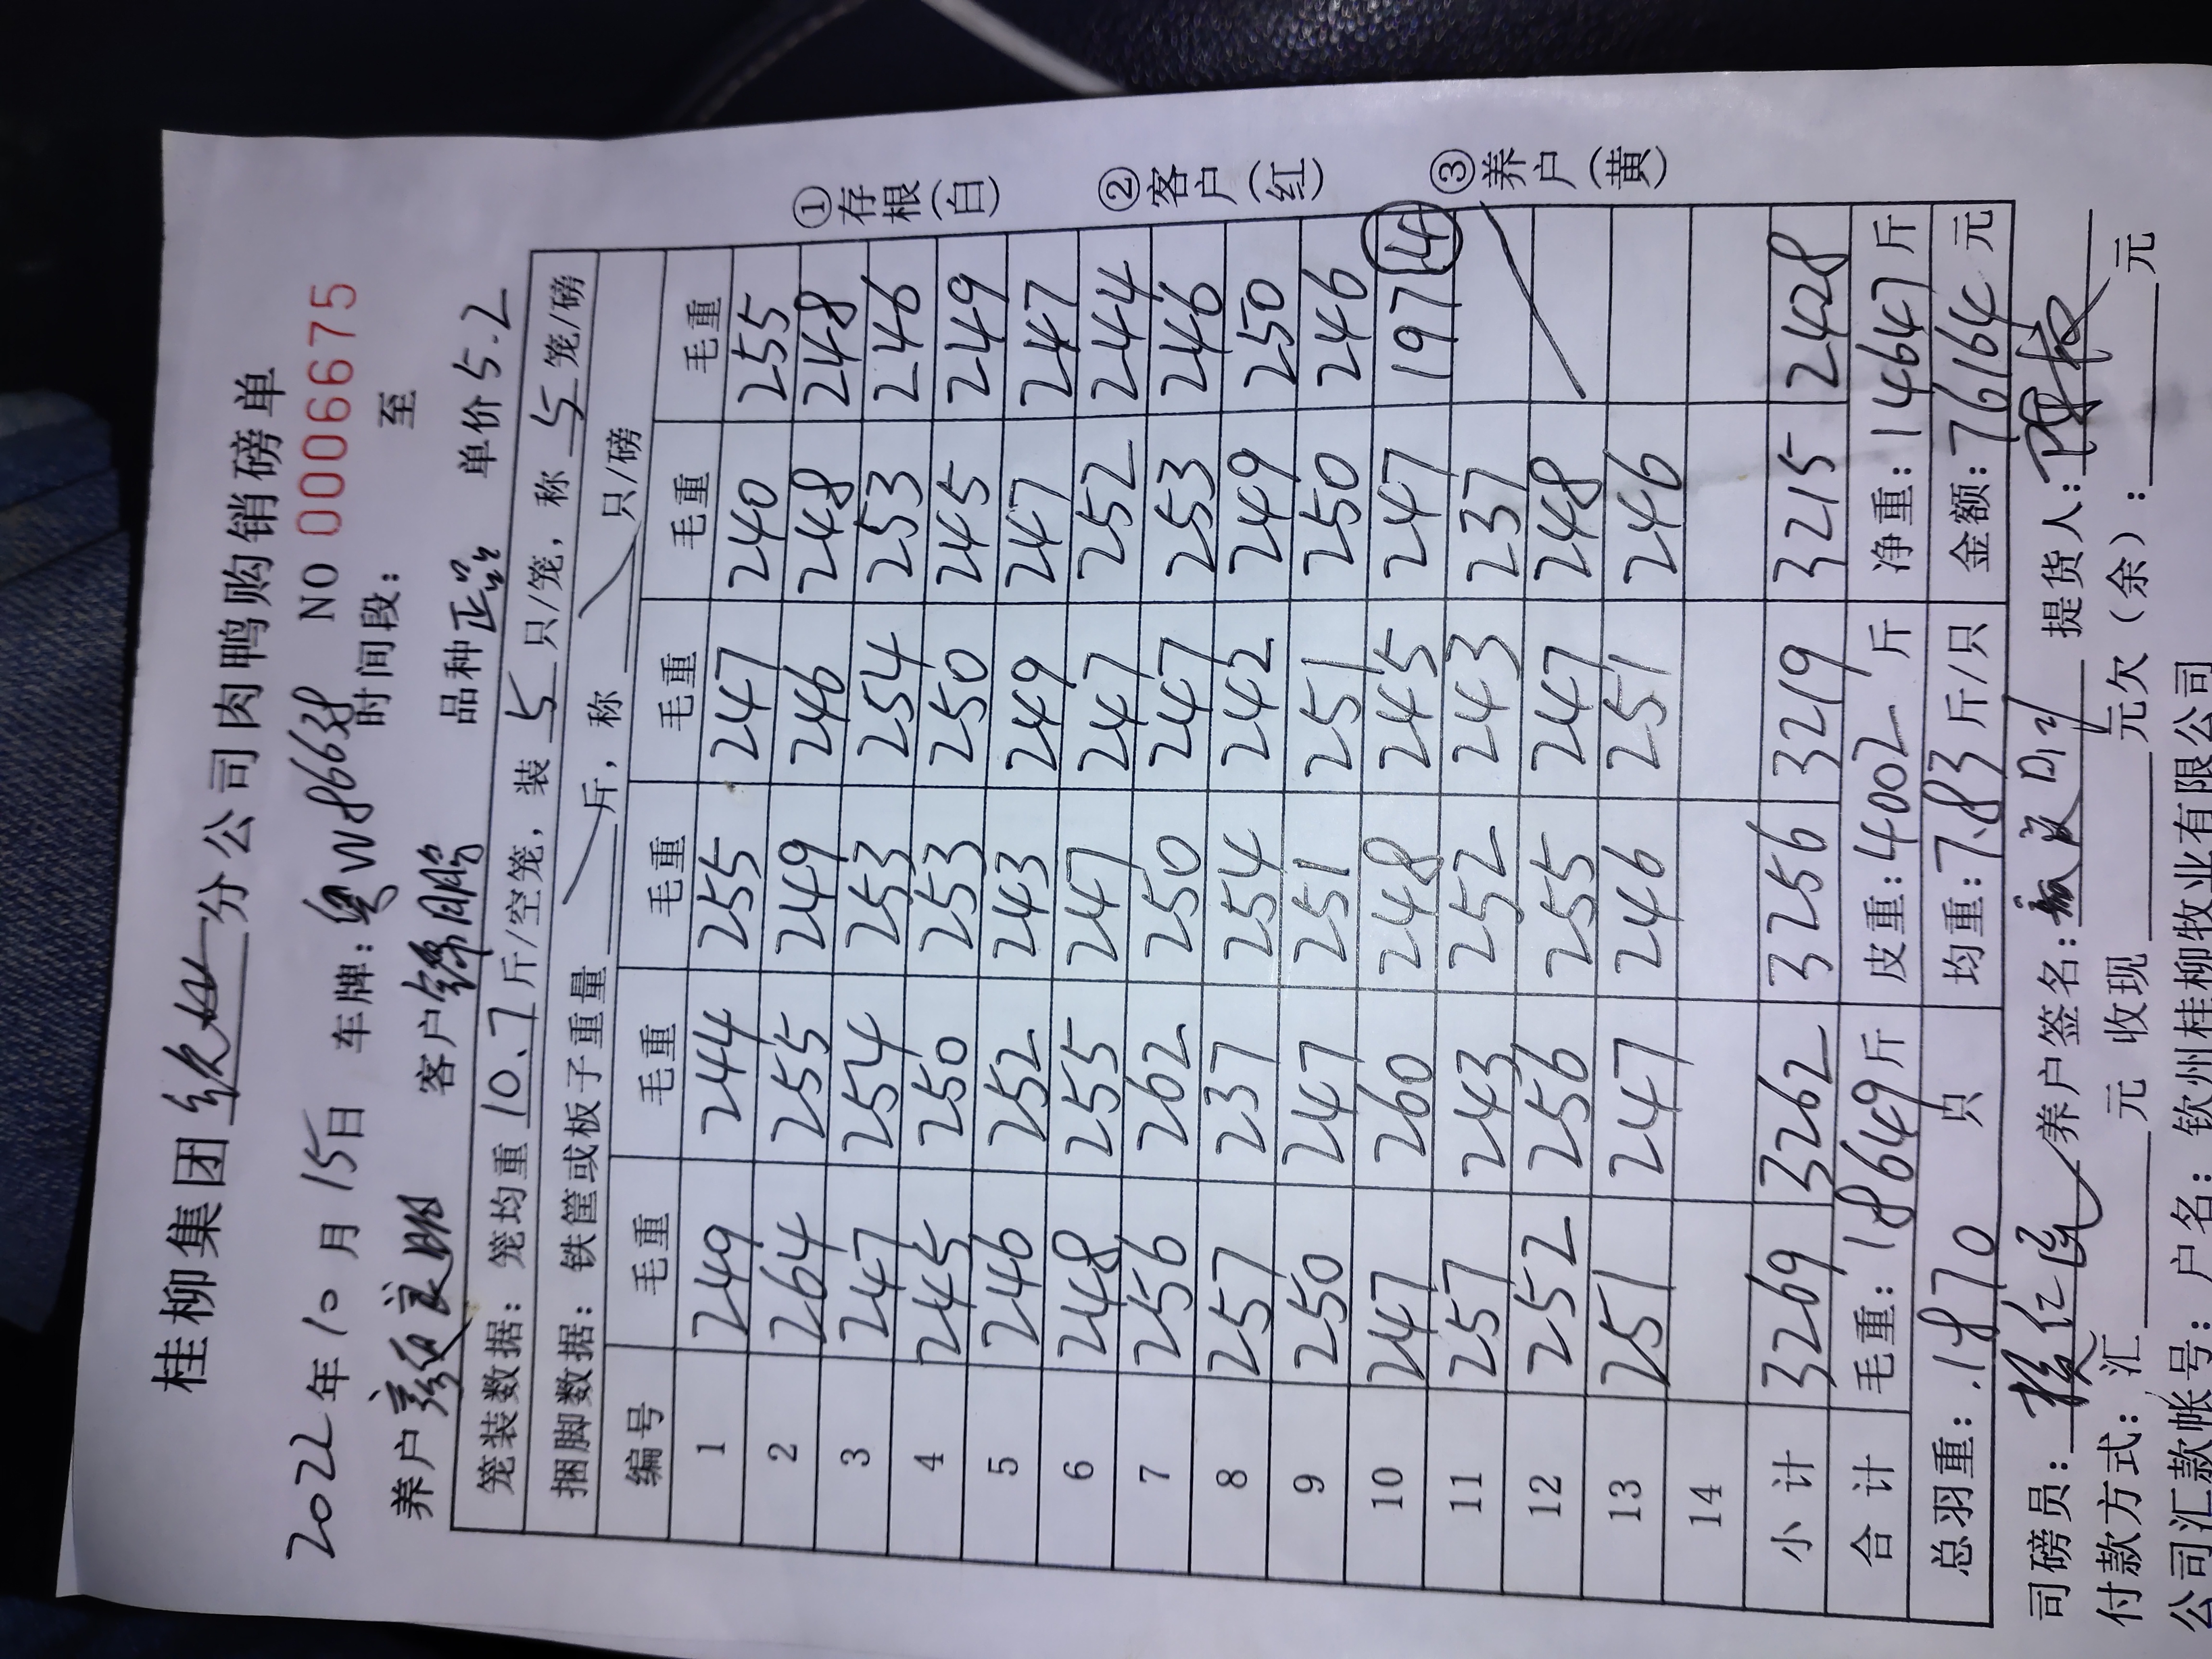 桂柳集团 分公司肉鸭购销磅单
2022年10月15日 车牌: 粤W8663 NO 0006675
时间段: 至
养户 良 客户 锦鹏 品种 正品 单价 5.2
笼装数据: 笼均重 10.7 斤/空笼, 装 5 只/笼, 称 5 笼/磅
捆脚数据: 铁筐或板子重量 斤, 称 只/磅
编号 毛重 毛重 毛重 毛重 毛重 毛重
1 249 244 255 247 240 255
2 264 255 249 246 248 248
3 247 254 253 254 253 246
4 245 250 253 250 245 249
5 246 252 243 249 247 247
6 248 255 247 247 252 244
7 256 262 250 247 253 246
8 257 237 254 242 249 250
9 250 247 251 251 250 246
10 247 260 248 245 247 197 ④
11 257 243 252 243 237
12 252 256 255 247 248
13 251 247 246 251 246
14
小计 3269 3262 3256 3219 3215 2428
合计 毛重: 18649 斤 皮重: 4002 斤 净重: 14647 斤
总羽重: 1870 只 均重: 7.83 斤/只 金额: 76164 元
司磅员: 养户签名: 提货人:
付款方式: 汇 元 收现 元欠(余): 元
公司汇款帐号: 户名: 钦州桂柳牧业有限公司
①存根(白) ②客户(红) ③养户(黄)